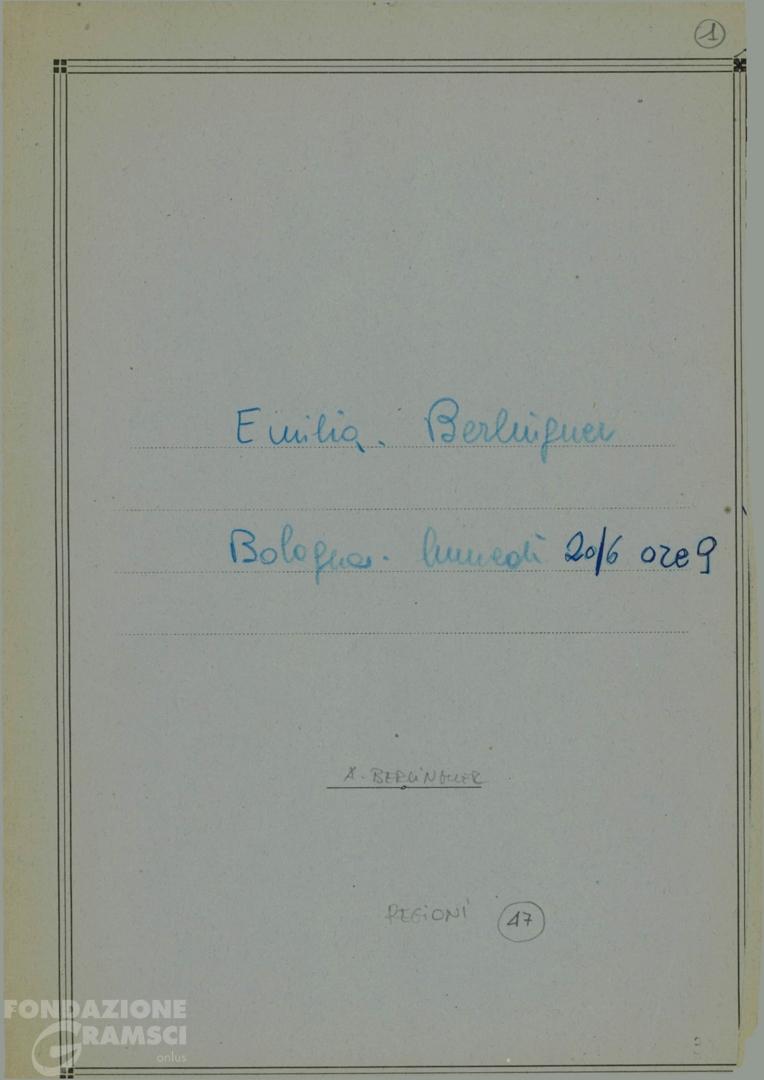 1
Emilia. Berlinguer
Bologna. lunedì 20/6 ore 9
A. BERLINGUER
REGIONI 47
FONDAZIONE
GRAMSCI
onlus